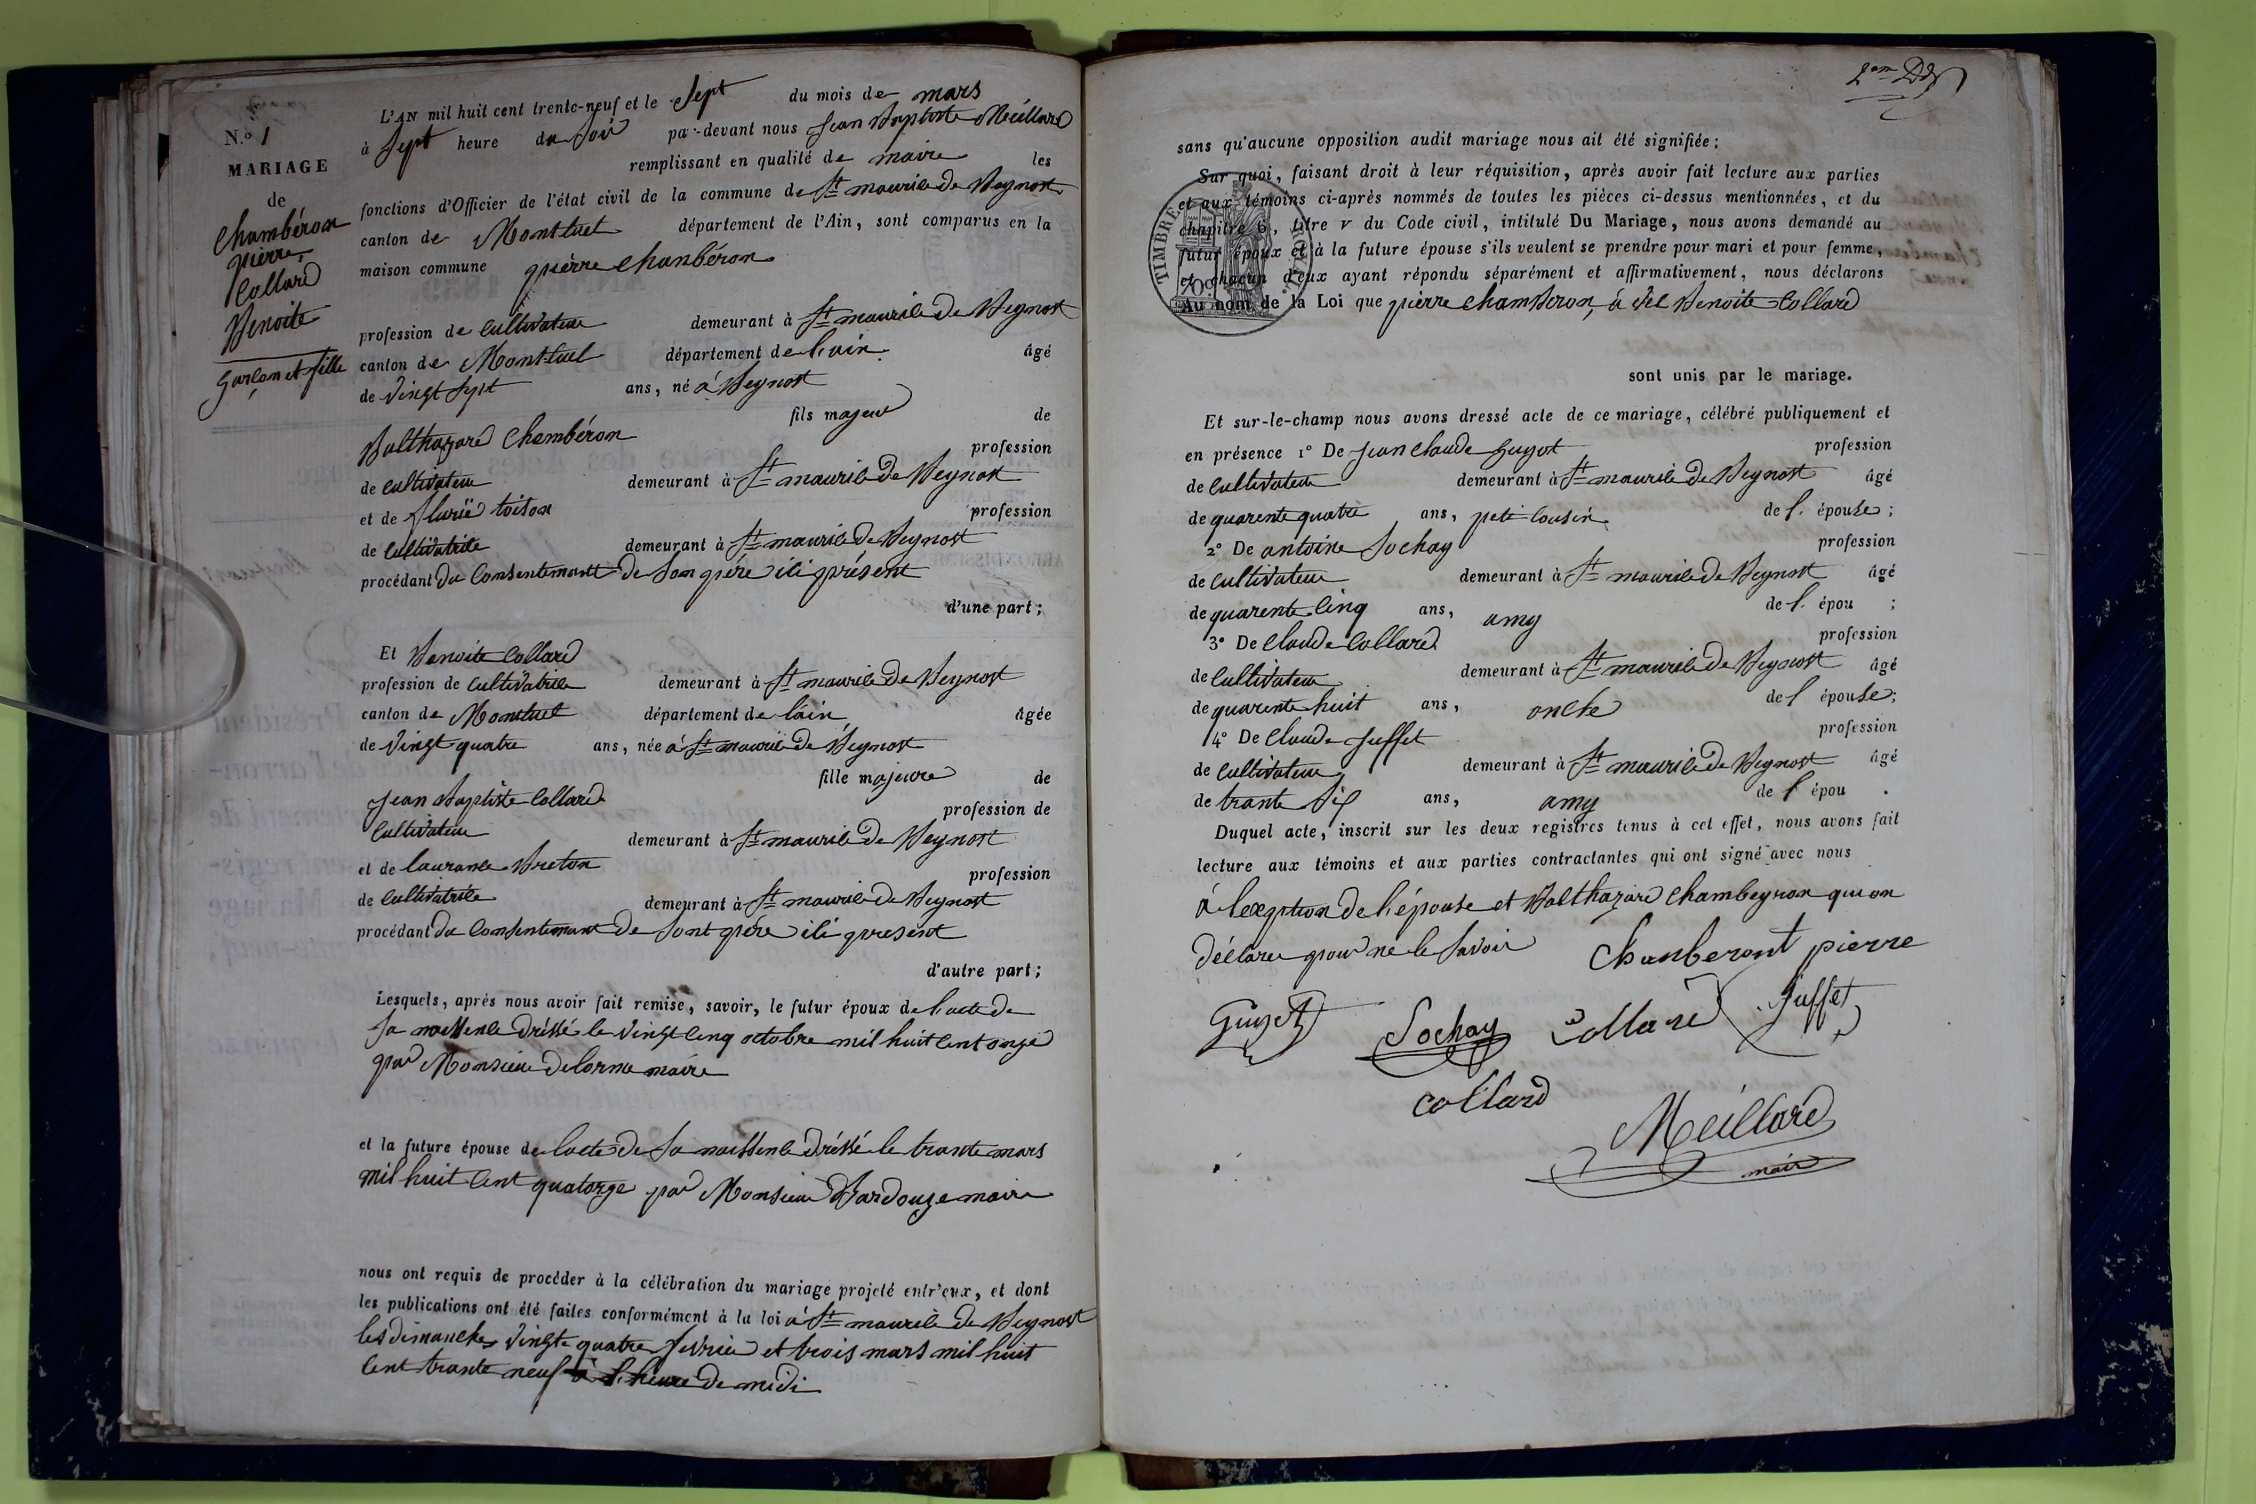 N.° 1
MARIAGE
de
Chambéron
pierre,
Collard
Benoite
garçon et fille
L'AN mil huit cent trente-neuf et le Sept du mois de mars
à Sept heure du Soir par-devant nous Jean Baptiste Meillard
remplissant en qualité de maire les
fonctions d'Officier de l'état civil de la commune de St maurice de Beynost
canton de Montluel département de l'Ain, sont comparus en la
maison commune pierre chanbéron
profession de cultivateur demeurant à St maurice de Beynost
canton de Montluel département de l'ain âgé
de vingt Sept ans, né à Beynost
fils majeur de
Balthazard Chambéron profession
de cultivateur demeurant à St maurice de Beynost
et de flurie toison profession
de cultivatrice demeurant à St maurice de Beynost
procédant du Consentemant de Son père ici présent
d'une part;
Et Benoite Collard
profession de cultivatrice demeurant à St maurice de Beynost
canton de Montluel département de l'ain âgée
de vingt quatre ans, née à St maurice de Beynost
fille majeure de
Jean Baptiste Collard profession de
Cultivateur demeurant à St maurice de Beynost
et de laurance Breton profession
de cultivatrice demeurant à St maurice de Beynost
procédant du Consentemant de Sont père ici présent
d'autre part;
Lesquels, après nous avoir fait remise, savoir, le futur époux de l'acte de
Sa naissence dréssé le vingt cinq octobre mil huit cent onze
par Monsieur Delorme maire
et la future épouse de l'acte de Sa naissence dréssé le trante mars
mil huit cent quatorze par Monsieur Bardouze maire
nous ont requis de procéder à la célébration du mariage projeté entr'eux, et dont
les publications ont été faites conformément à la loi à St maurice de Beynost
les dimanches vingt quatre fevrier et trois mars mil huit
cent trante neuf à l'heure de midi
2em
sans qu'aucune opposition audit mariage nous ait été signifiée;
Sur quoi, faisant droit à leur réquisition, après avoir fait lecture aux parties
et aux témoins ci-après nommés de toutes les pièces ci-dessus mentionnées, et du
chapitre 6, titre V du Code civil, intitulé Du Mariage, nous avons demandé au
futur époux et à la future épouse s'ils veulent se prendre pour mari et pour femme,
et chacun d'eux ayant répondu séparément et affirmativement, nous déclarons
Au nom de la Loi que pierre chamberon, & de Benoite Collard
TIMBRE ROYAL
70c
sont unis par le mariage.
Et sur-le-champ nous avons dressé acte de ce mariage, célébré publiquement et
en présence 1° De Jean Claude Guyot profession
de cultivateur demeurant à St maurice de Beynost âgé
de quarente quatre ans, petit cousin de l'épouse;
2° De antoine Sochay profession
de cultivateur demeurant à St maurice de Beynost âgé
de quarente cinq ans, amy de l'épou ;
3° De Claude Collard profession
de cultivateur demeurant à St maurice de Beynost âgé
de quarente huit ans, oncle de l'épouse;
4° De Claude Juffet profession
de cultivateur demeurant à St maurice de Beynost âgé
de trante Six ans, amy de l'épou .
Duquel acte, inscrit sur les deux registres tenus à cet effet, nous avons fait
lecture aux témoins et aux parties contractantes qui ont signé avec nous
à l'exeption de l'épouse et Balthazard chambeyron qui on
déclarer pour ne le savoir Chanberont pierre
Guyot Sochay Collard Juffet
collard
Meillard
maire